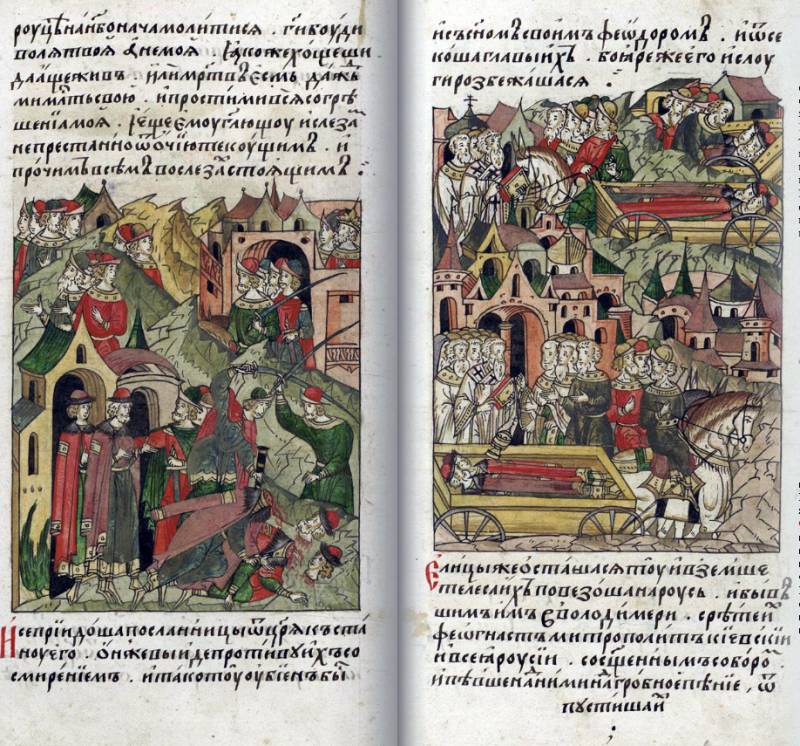 роуцѣ на нб҃о нача молитися . ги҃ боуди
воля твоя а не моя . Ꙗкоже хощеши
да аще живъ . или мр҃твъ есмь . даждь
ми млⷭ҇ть свою . и прости ми вся согрѣ
шенїа моя . Ꙗще емоу гл҃ющоу и слеза
непрестанно ѿ очїю текоущимъ . и
прочимъ всѣмъ во слезаⷯ стоящимъ .
И се прїидоша посланницы ѿ цр҃я къ ста
ноу его . онже выиде противу ихъ со
смиренїемъ . и тако тоу оубїенъ бы
и съ сн҃омъ своимъ феѡдоромъ . и ѿсе
коша главы иⷯ . бояре же его и слоу
ги розбежашася
Елицы же осташася тоу и вземше
телеса ихъ повезоша на роусь . и быв
шимъ имъ въ володимери . срѣте иⷯ
феогнастъ митрополитъ кїевскїи
и всея роусїи . со сщ҃еннымъ соборо
и пѣвше над ними надгробное пѣнїе , ѿ
пустиша иⷯ